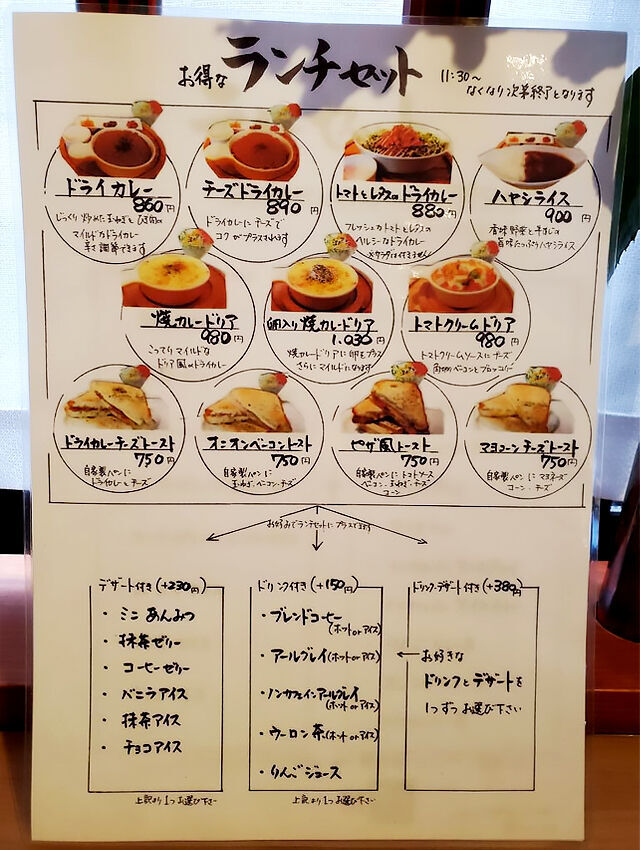 お得な ランチセット 11:30～
なくなり次第終了となります
ドライカレー
860円
じっくり炒めた玉ねぎとひき肉の
マイルドなドライカレー
辛さ調節できます
チーズドライカレー
890円
ドライカレーにチーズで
コクがプラスされます
トマトとレタスのドライカレー
880円
フレッシュなトマトとレタスの
ヘルシーなドライカレー
※サラダは付きません
ハヤシライス
900円
香味野菜と牛すじの
旨味たっぷりハヤシライス
焼カレードリア
980円
こってりマイルドな
ドリア風のドライカレー
卵入り焼カレードリア
1,030円
焼カレードリアに卵をプラス
さらにマイルドになります
トマトクリームドリア
980円
トマトクリームソースにチーズ
角切ベーコンとブロッコリー
ドライカレーチーズトースト
750円
自家製パンに
ドライカレーとチーズ
オニオンベーコントースト
750円
自家製パンに
玉ねぎ・ベーコン・チーズ
ピザ風トースト
750円
自家製パンにトマトソース
ベーコン、玉ねぎ、チーズ
コーン
マヨコーンチーズトースト
750円
自家製パンにマヨネーズ
コーン・チーズ
お好みでランチセットにプラスできます
デザート付き(+230円)
・ミニあんみつ
・抹茶ゼリー
・コーヒーゼリー
・バニラアイス
・抹茶アイス
・チョコアイス
上記より1つお選び下さい
ドリンク付き(+150円)
・ブレンドコーヒー
(ホットorアイス)
・アールグレイ(ホットorアイス)
・ノンカフェインアールグレイ
(ホットorアイス)
・ウーロン茶(ホットorアイス)
・りんごジュース
上記より1つお選び下さい
ドリンク・デザート付き(+380円)
お好きな
ドリンクとデザートを
1つずつお選び下さい